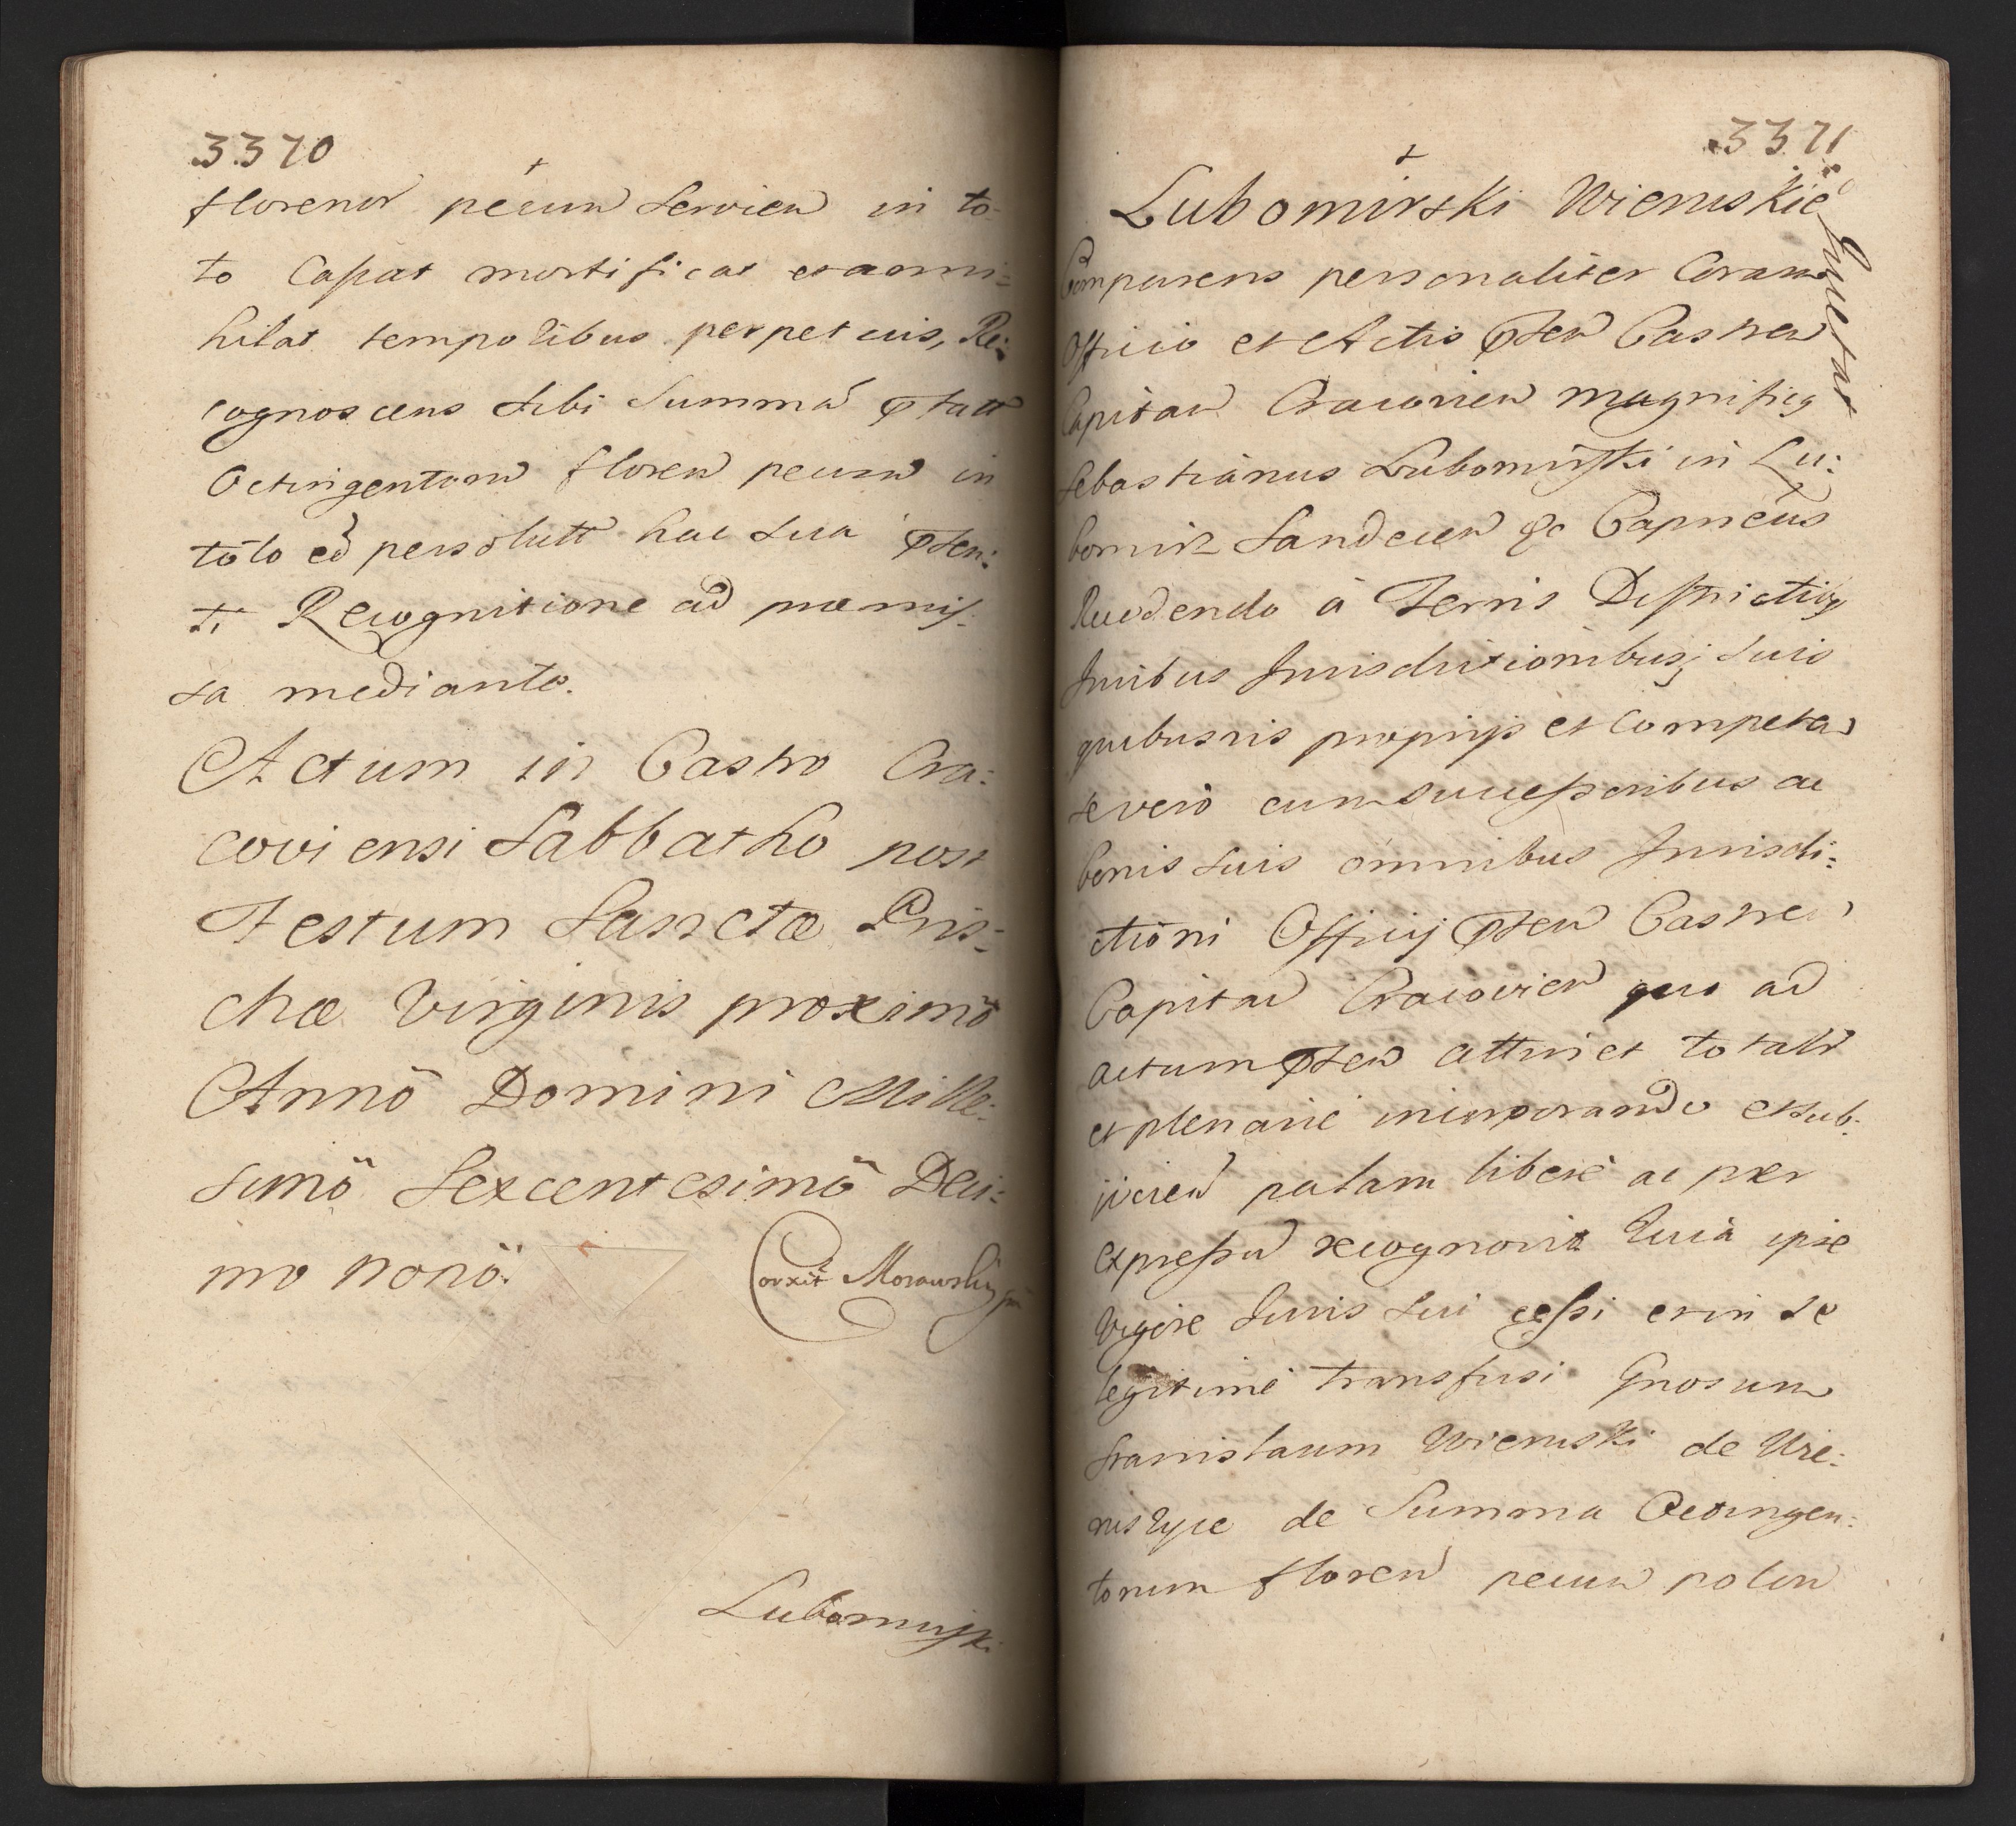 3370
florenor pecun servien in to-
to Cassat mortificat et anni:
hilat temporibus perpetuis, Re:
cognoscens sibi Summã pstatt
Octingentorũ floren pecun in
toto eã persolutt hac sua pñen:
ti Recognitione ad præmis:
sa mediante.
Actum in Castro Cra:
coviensi Sabbatho post
Festum Sanctæ Pris:
chæ Virginis proximô
Annô Domini Mille:
simô Sexcentesimô Deci:
mo nonô.
Corxit Morawski
Lubomirski
3371
Lubomirski Wieruski
quietat
Comparens personaliter Coram
Officio et Actis pñten Castren
Capitan Cracovien magnificq
Sebastianus Lubomirski in Lu:
bomirz Sandecen &c Capneus
Recedendo à Terris Districtibq
Iuribus Iurisdictionibusq suis
quibusvis proprijs et Competen
se verò cum successoribus ac
bonis suis omnibus Iurisdi:
ctioni Officij pñten Castren
Capitan Cracovien quo ad
actum pñten attinet totalr
et plenarie incorporando et sub:
ijcien palam liberè ac per
expressũ recognovit Quia ipse
vigore Iuris sui cessi et in se
legitimè transfusi Gnosum
Stanislaum Wieruski de Wie:
ruszyce de Summa Octingen:
torum floren pecun polon